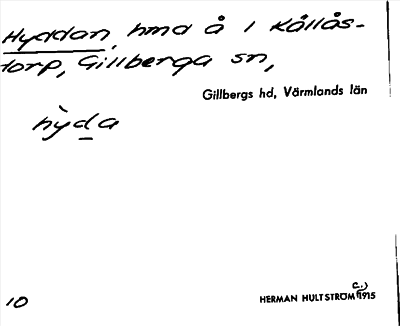 Hyddan, hmd å 1 Kållås-
torp, Gillberga sn,
Gillbergs hd, Värmlands län
hy̆̀da
10
HERMAN HULTSTRÖM 1915